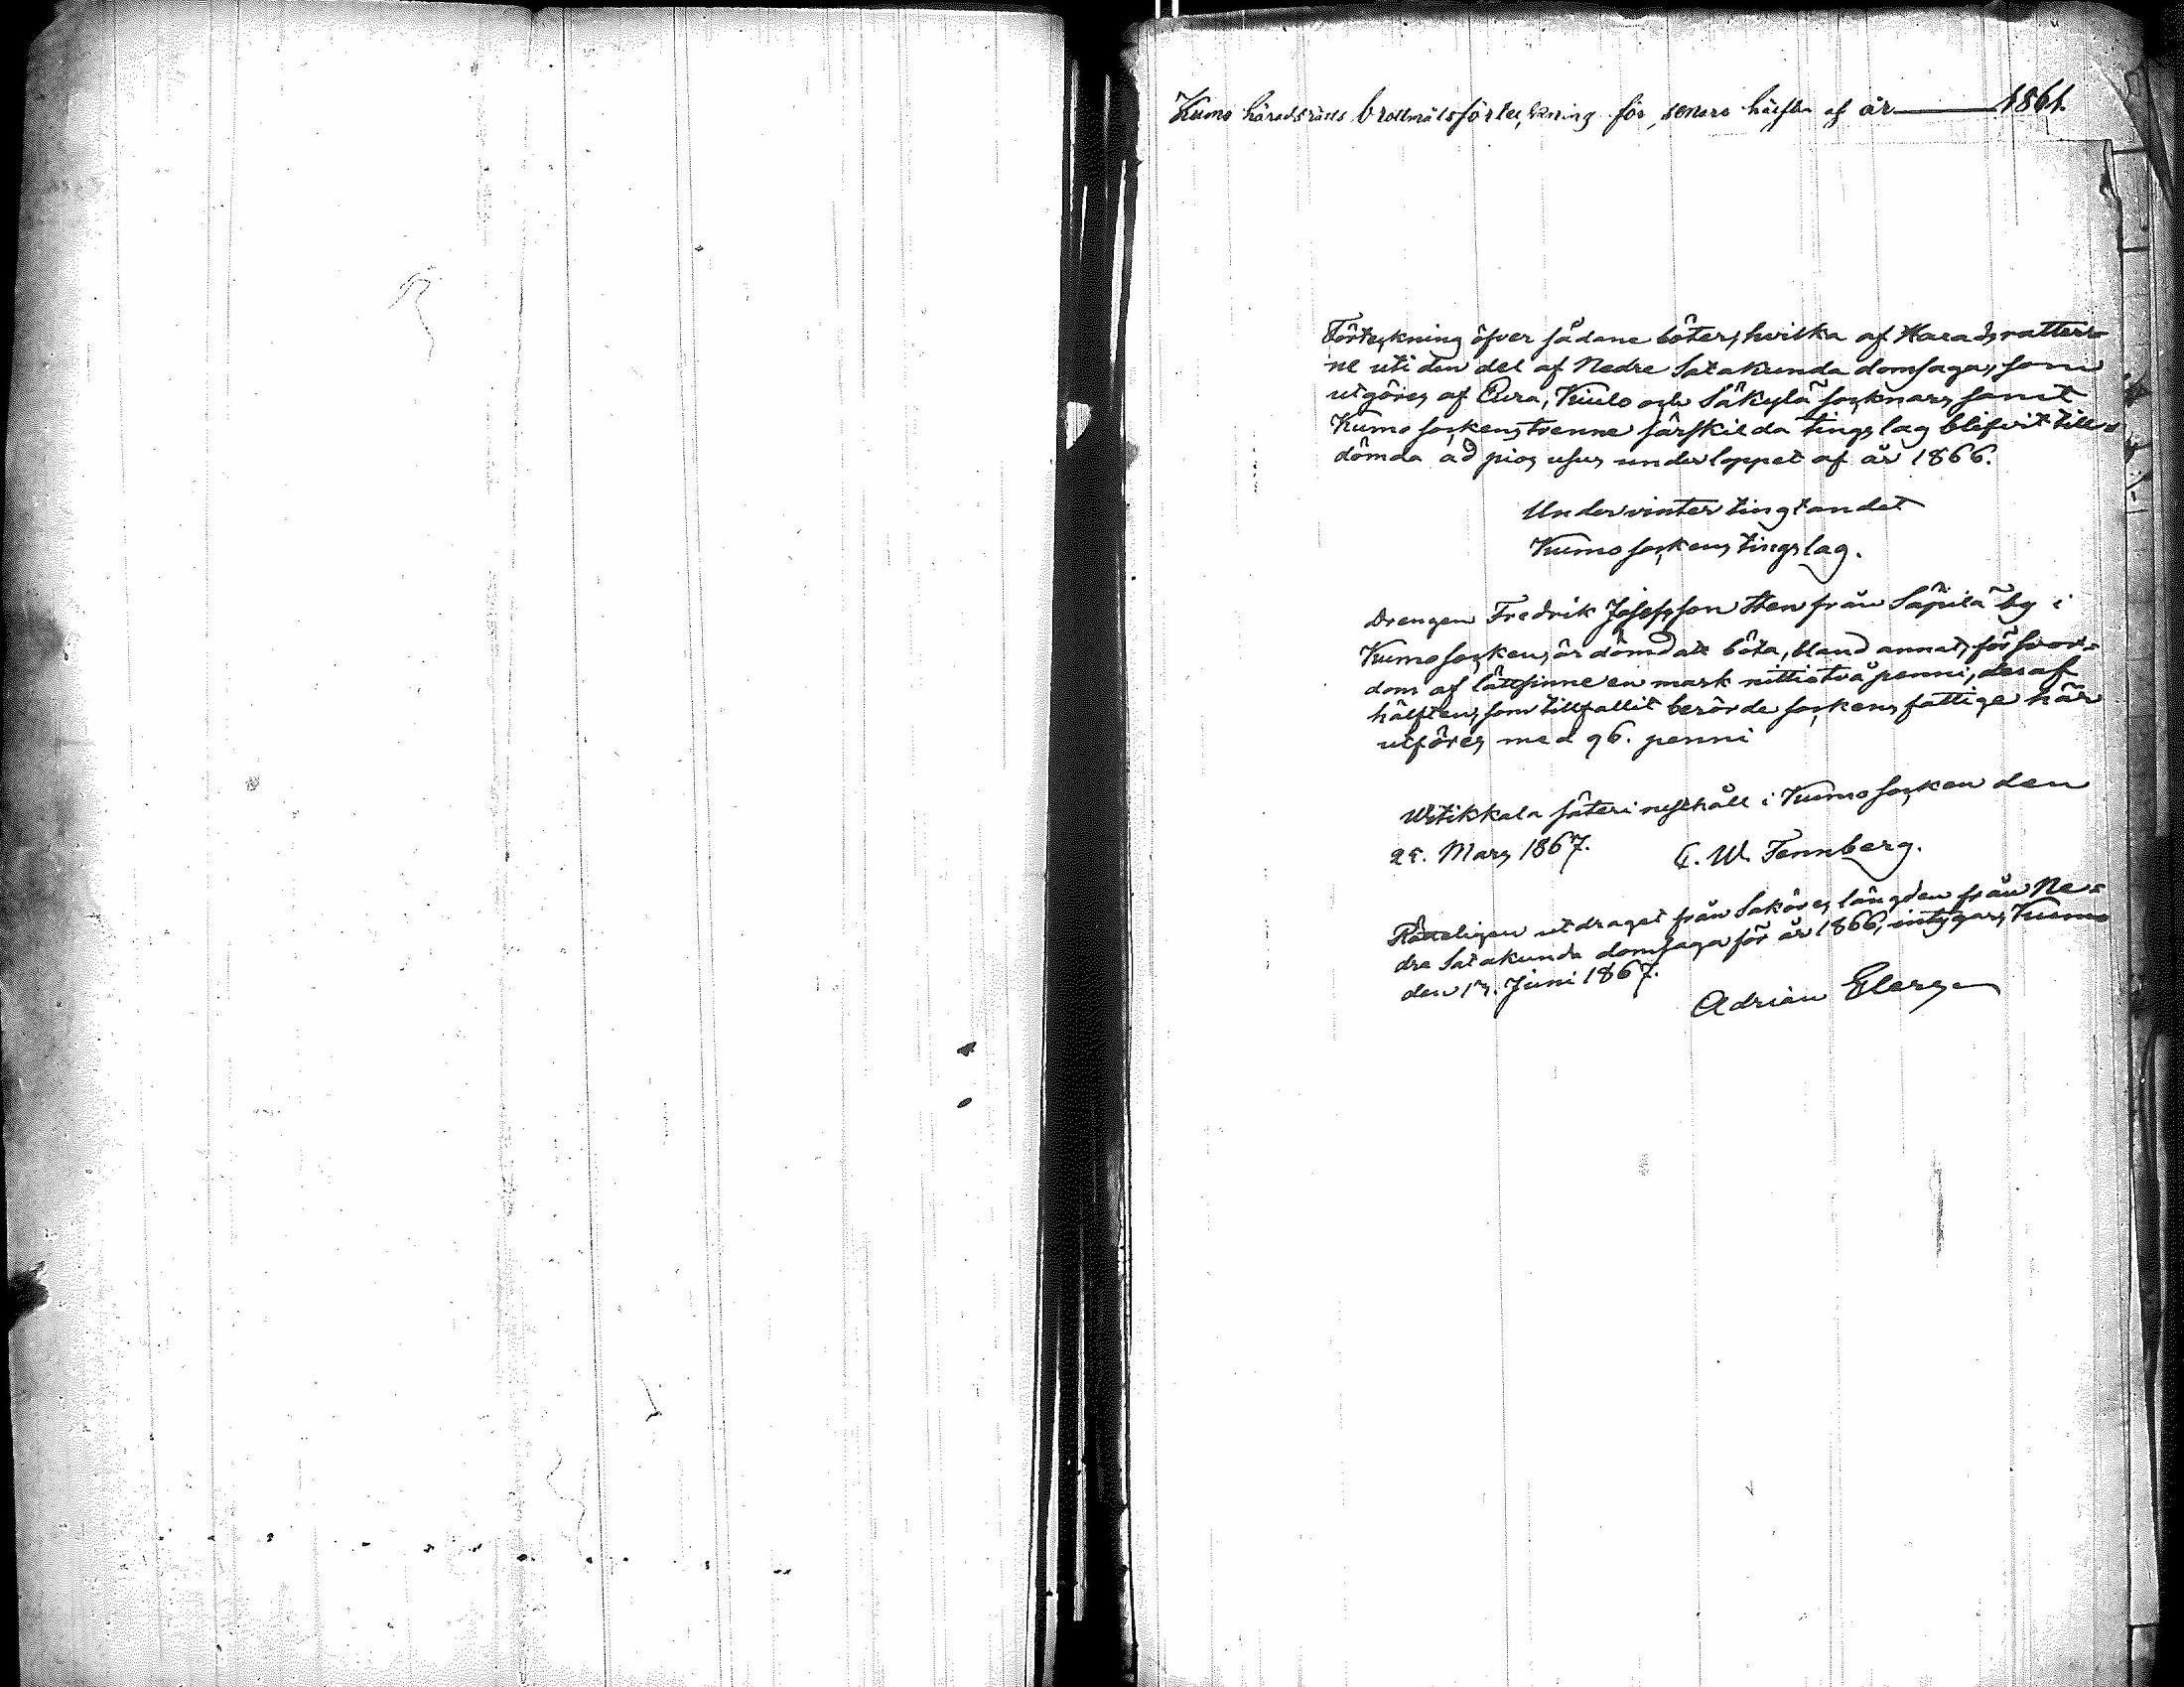 Kumo häradsrätts brottmålsförteckning för senare hälften af år 1861.
Förteckning öfver sådane böter, hvilka af Haradsratter-
ne uti den del af Nedre Satakunda domsaga, som
utgöres af Eura, Kiulo och Säkylä socknars samt
Kumo sockens trenne särskilda tingslag blifvit till-
dömda ad pios usus under loppet af år 1866.
Under vintertingtandet
Kumo sockens tingslag.
Drengen Fredrik Josefsson Sten från Säpilä by i
Kumo socken, är dömd att böta, bland annat, för svor-
dom af lättsinne en mark nittiotvå penni, deraf
hälften, som tillfallit berörde sockens fattige här
utföres med 96. penni
Witikkala säteri rusthåll i Kumo socken den
Mars 1867. C. W. Fennberg.
Rätteligen utdraget från Saköres längden från Ne-
dre Satakunda domsaga för år 1866, intygar, Kumo
den Juni 1867.
Adrian